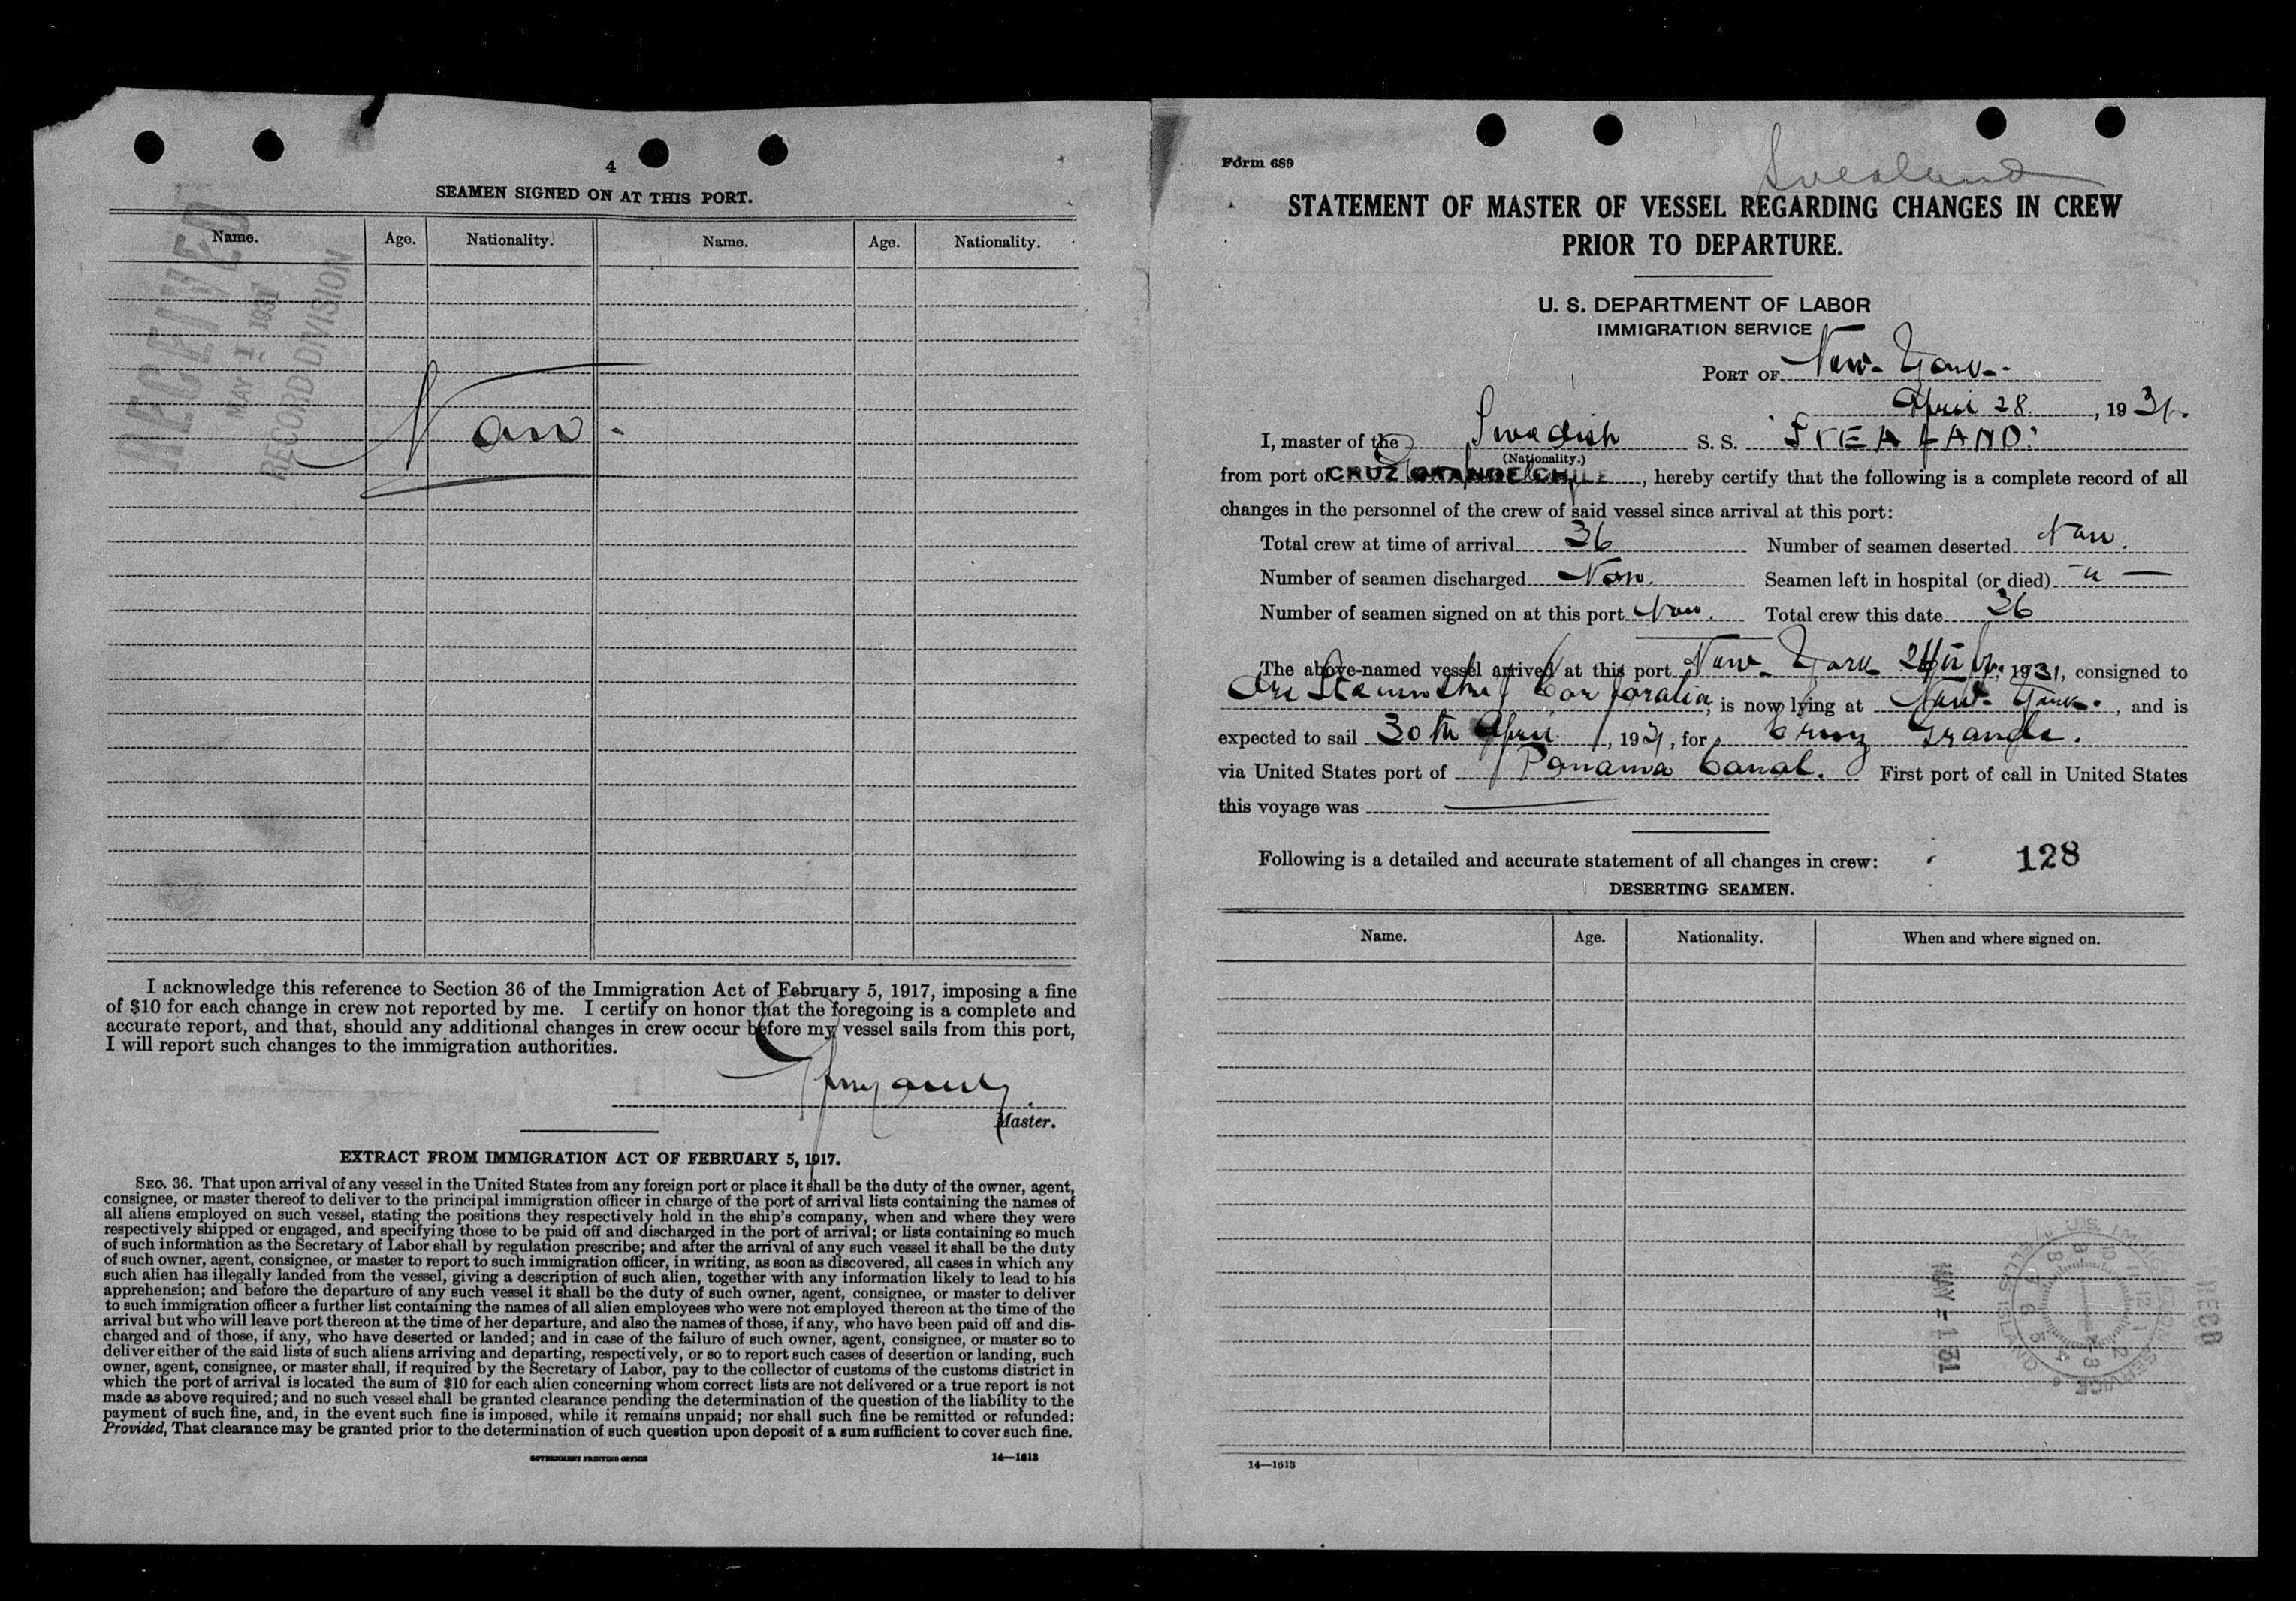 4
SEAMEN SIGNED ON AT THIS PORT.
Name. Age. Nationality. Name. Age. Nationality.
RECEIVED
MAY 1 1931
RECORD DIVISION
Non.
I acknowledge this reference to Section 36 of the Immigration Act of February 5, 1917, imposing a fine
of $10 for each change in crew not reported by me. I certify on honor that the foregoing is a complete and
accurate report, and that, should any additional changes in crew occur before my vessel sails from this port,
I will report such changes to the immigration authorities.
Master.
EXTRACT FROM IMMIGRATION ACT OF FEBRUARY 5, 1917.
SEC. 36. That upon arrival of any vessel in the United States from any foreign port or place it shall be the duty of the owner, agent,
consignee, or master thereof to deliver to the principal immigration officer in charge of the port of arrival lists containing the names of
all aliens employed on such vessel, stating the positions they respectively hold in the ship's company, when and where they were
respectively shipped or engaged, and specifying those to be paid off and discharged in the port of arrival; or lists containing so much
of such information as the Secretary of Labor shall by regulation prescribe; and after the arrival of any such vessel it shall be the duty
of such owner, agent, consignee, or master to report to such immigration officer, in writing, as soon as discovered, all cases in which any
such alien has illegally landed from the vessel, giving a description of such alien, together with any information likely to lead to his
apprehension; and before the departure of any such vessel it shall be the duty of such owner, agent, consignee, or master to deliver
to such immigration officer a further list containing the names of all alien employees who were not employed thereon at the time of the
arrival but who will leave port thereon at the time of her departure, and also the names of those, if any, who have been paid off and dis-
charged and of those, if any, who have deserted or landed; and in case of the failure of such owner, agent, consignee, or master so to
deliver either of the said lists of such aliens arriving and departing, respectively, or so to report such cases of desertion or landing, such
owner, agent, consignee, or master shall, if required by the Secretary of Labor, pay to the collector of customs of the customs district in
which the port of arrival is located the sum of $10 for each alien concerning whom correct lists are not delivered or a true report is not
made as above required; and no such vessel shall be granted clearance pending the determination of the question of the liability to the
payment of such fine, and, in the event such fine is imposed, while it remains unpaid; nor shall such fine be remitted or refunded:
Provided, That clearance may be granted prior to the determination of such question upon deposit of a sum sufficient to cover such fine.
GOVERNMENT PRINTING OFFICE 14—1613
Form 689
Svealand
STATEMENT OF MASTER OF VESSEL REGARDING CHANGES IN CREW
PRIOR TO DEPARTURE.
U. S. DEPARTMENT OF LABOR
IMMIGRATION SERVICE
PORT OF New-York-
April 28, 1931.
I, master of the Swedish S. S. "SVEALAND"
(Nationality.)
from port of CRUZ GRANDE CHILE, hereby certify that the following is a complete record of all
changes in the personnel of the crew of said vessel since arrival at this port:
Total crew at time of arrival 36 Number of seamen deserted Non.
Number of seamen discharged Non. Seamen left in hospital (or died) -"-
Number of seamen signed on at this port Non. Total crew this date 36
The above-named vessel arrived at this port New-York 1931, consigned to
Ore Steamship Corporation, is now lying at New-York., and is
expected to sail 30th April, 1931, for Cruz Grande.
via United States port of Panama Canal. First port of call in United States
this voyage was
Following is a detailed and accurate statement of all changes in crew:
128
DESERTING SEAMEN.
Name. Age. Nationality. When and where signed on.
MAY - 1 31
U.S. IMMIGRATION SERVICE
ELLIS ISLAND
12 1 2 3 4 5 6 7 8 9 10 11
RECD
14—1613